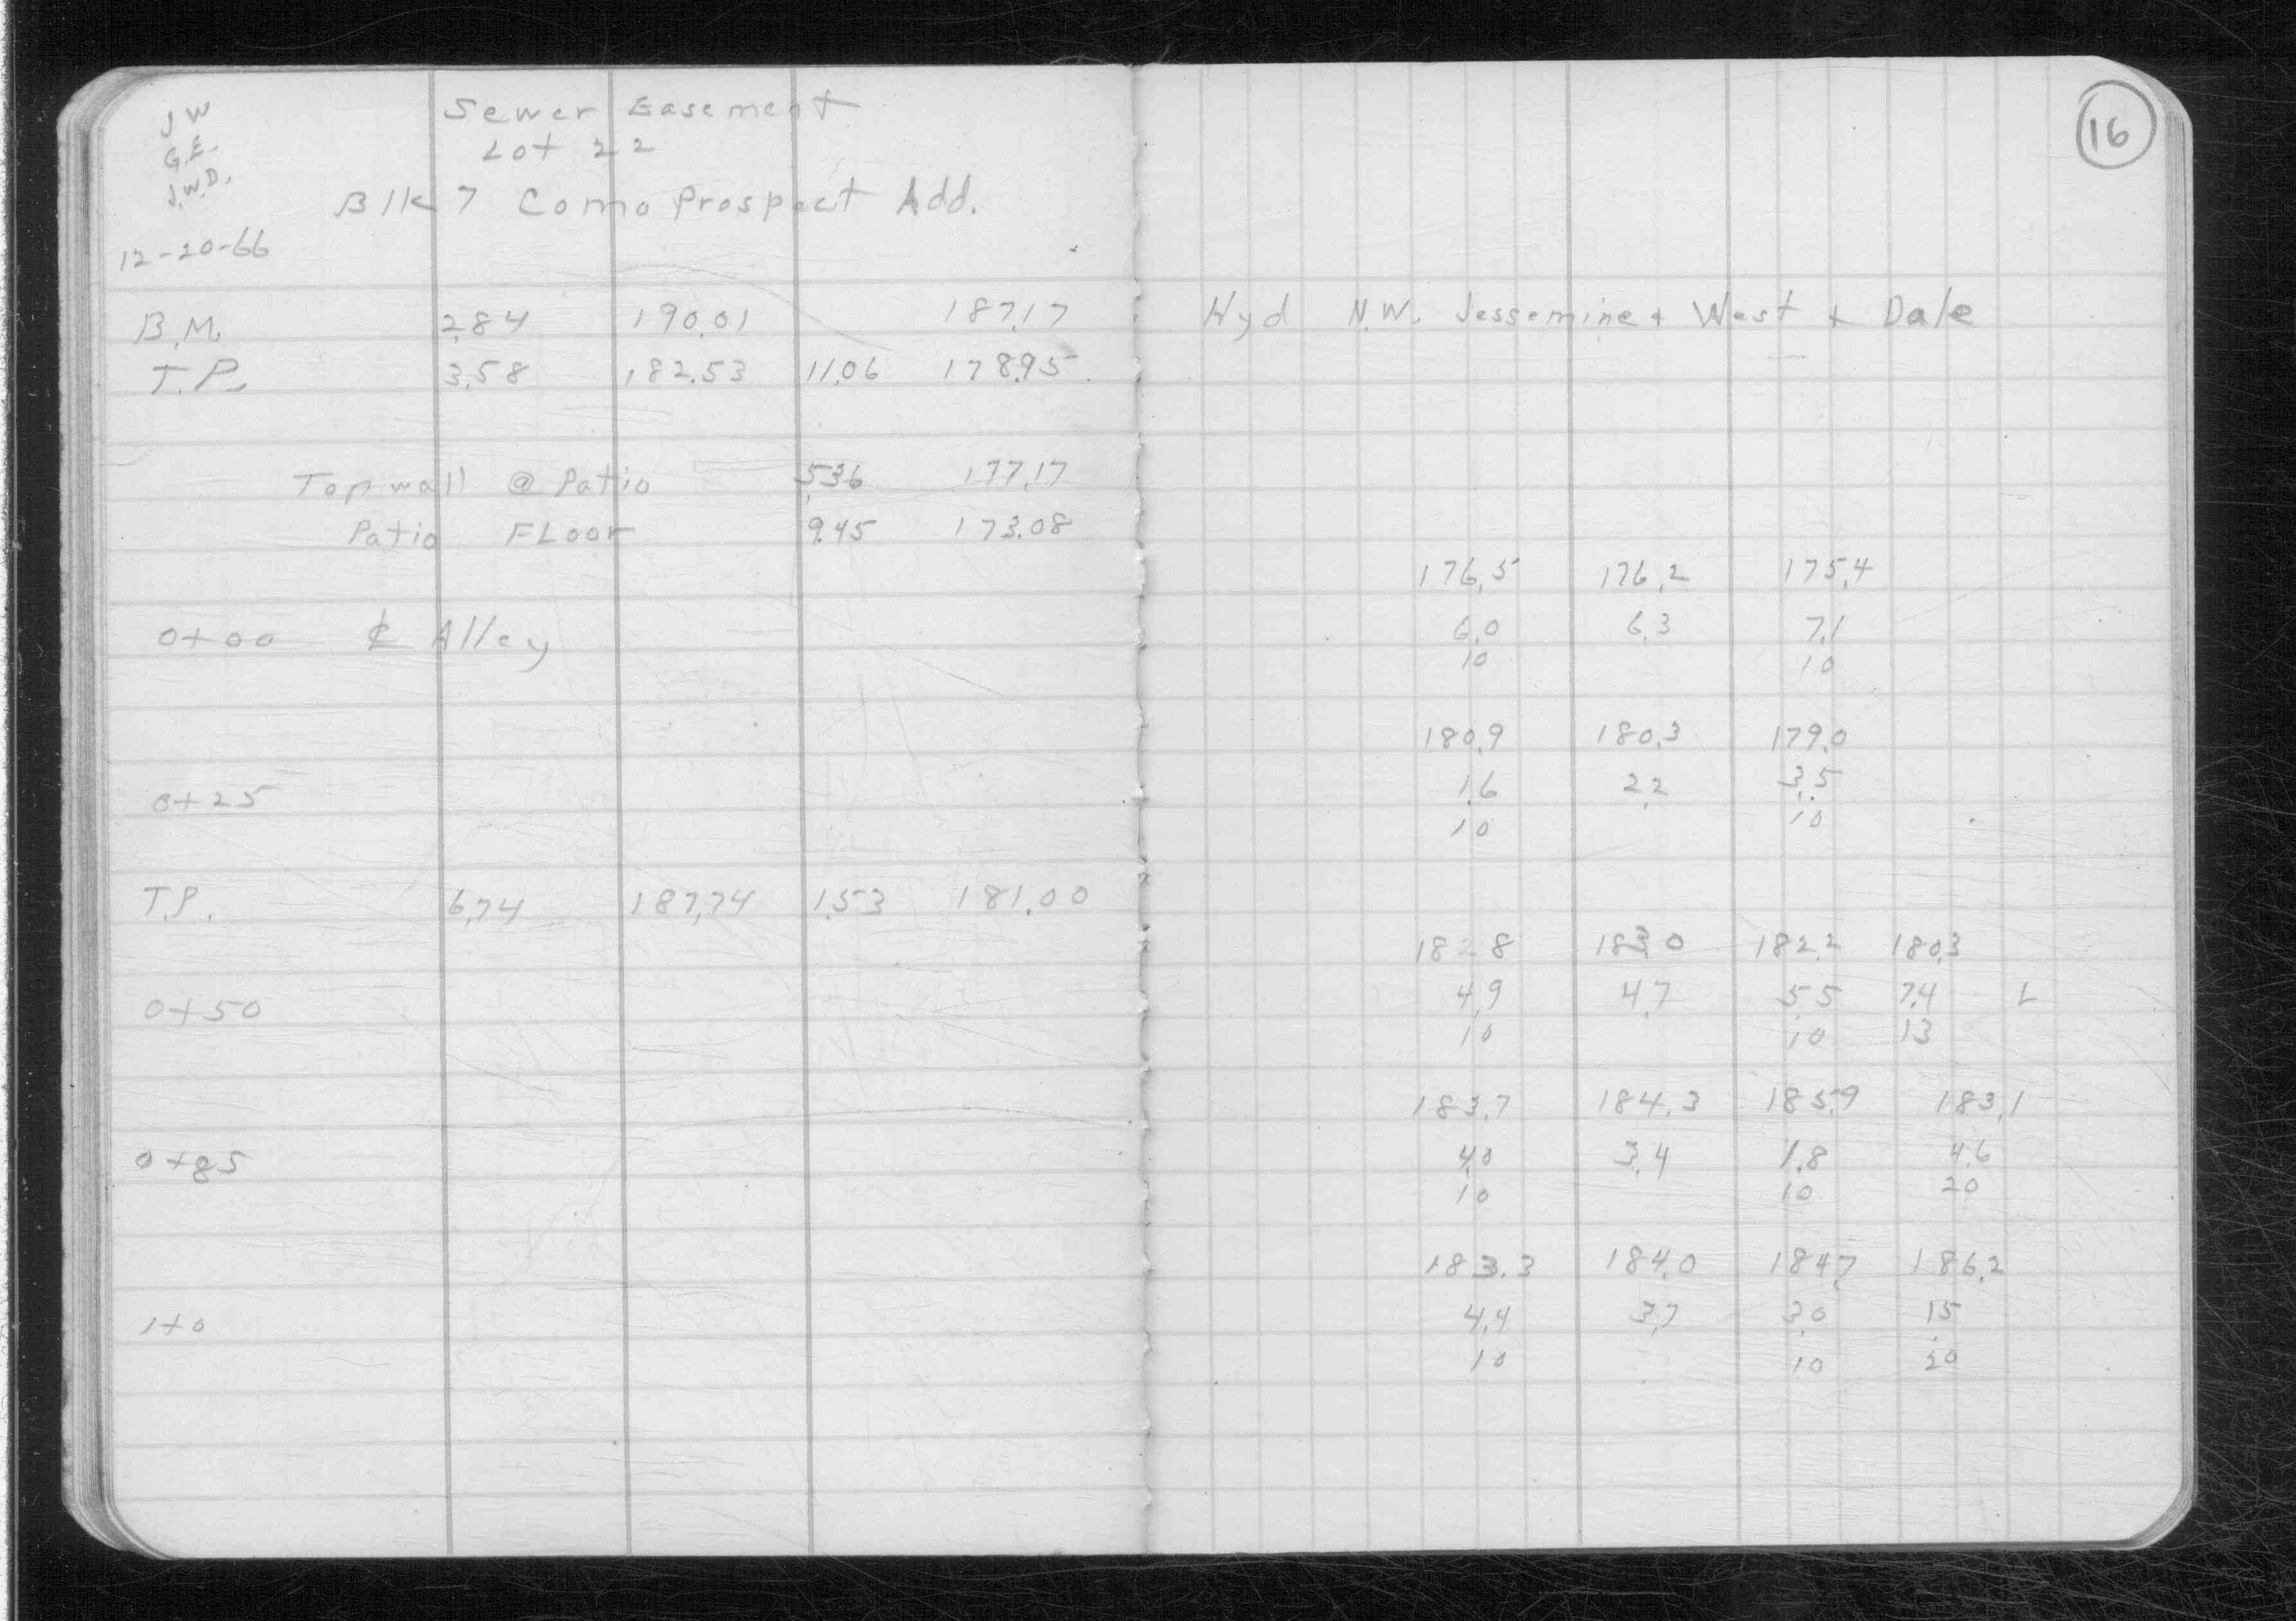 J W
G.E.
J.W.D.
Sewer Easement
Lot 22
Blk 7 Como Prospect Add.
12-20-66
B.M. 2.84 190.01 187.17
T.P. 3.58 182.53 11.06 178.95
Top wall @ Patio 5.36 177.17
Patio FLoor 9.45 173.08
0+00 ℄ Alley
0+25
T.P. 6.74 187.74 1.53 181.00
0+50
0+85
1+0
16
Hyd N.W. Jessemine + West + Dale
176.5 176.2 175.4
6.0 6.3 7.1
10 10
180.9 180.3 179.0
1.6 2.2 3.5
10 10
182.8 183.0 182.2 180.3
4.9 4.7 5.5 7.4 L
10 10 13
183.7 184.3 185.9 183.1
4.0 3.4 1.8 4.6
10 10 20
183.3 184.0 184.7 186.2
4.4 3.7 3.0 1.5
10 10 20